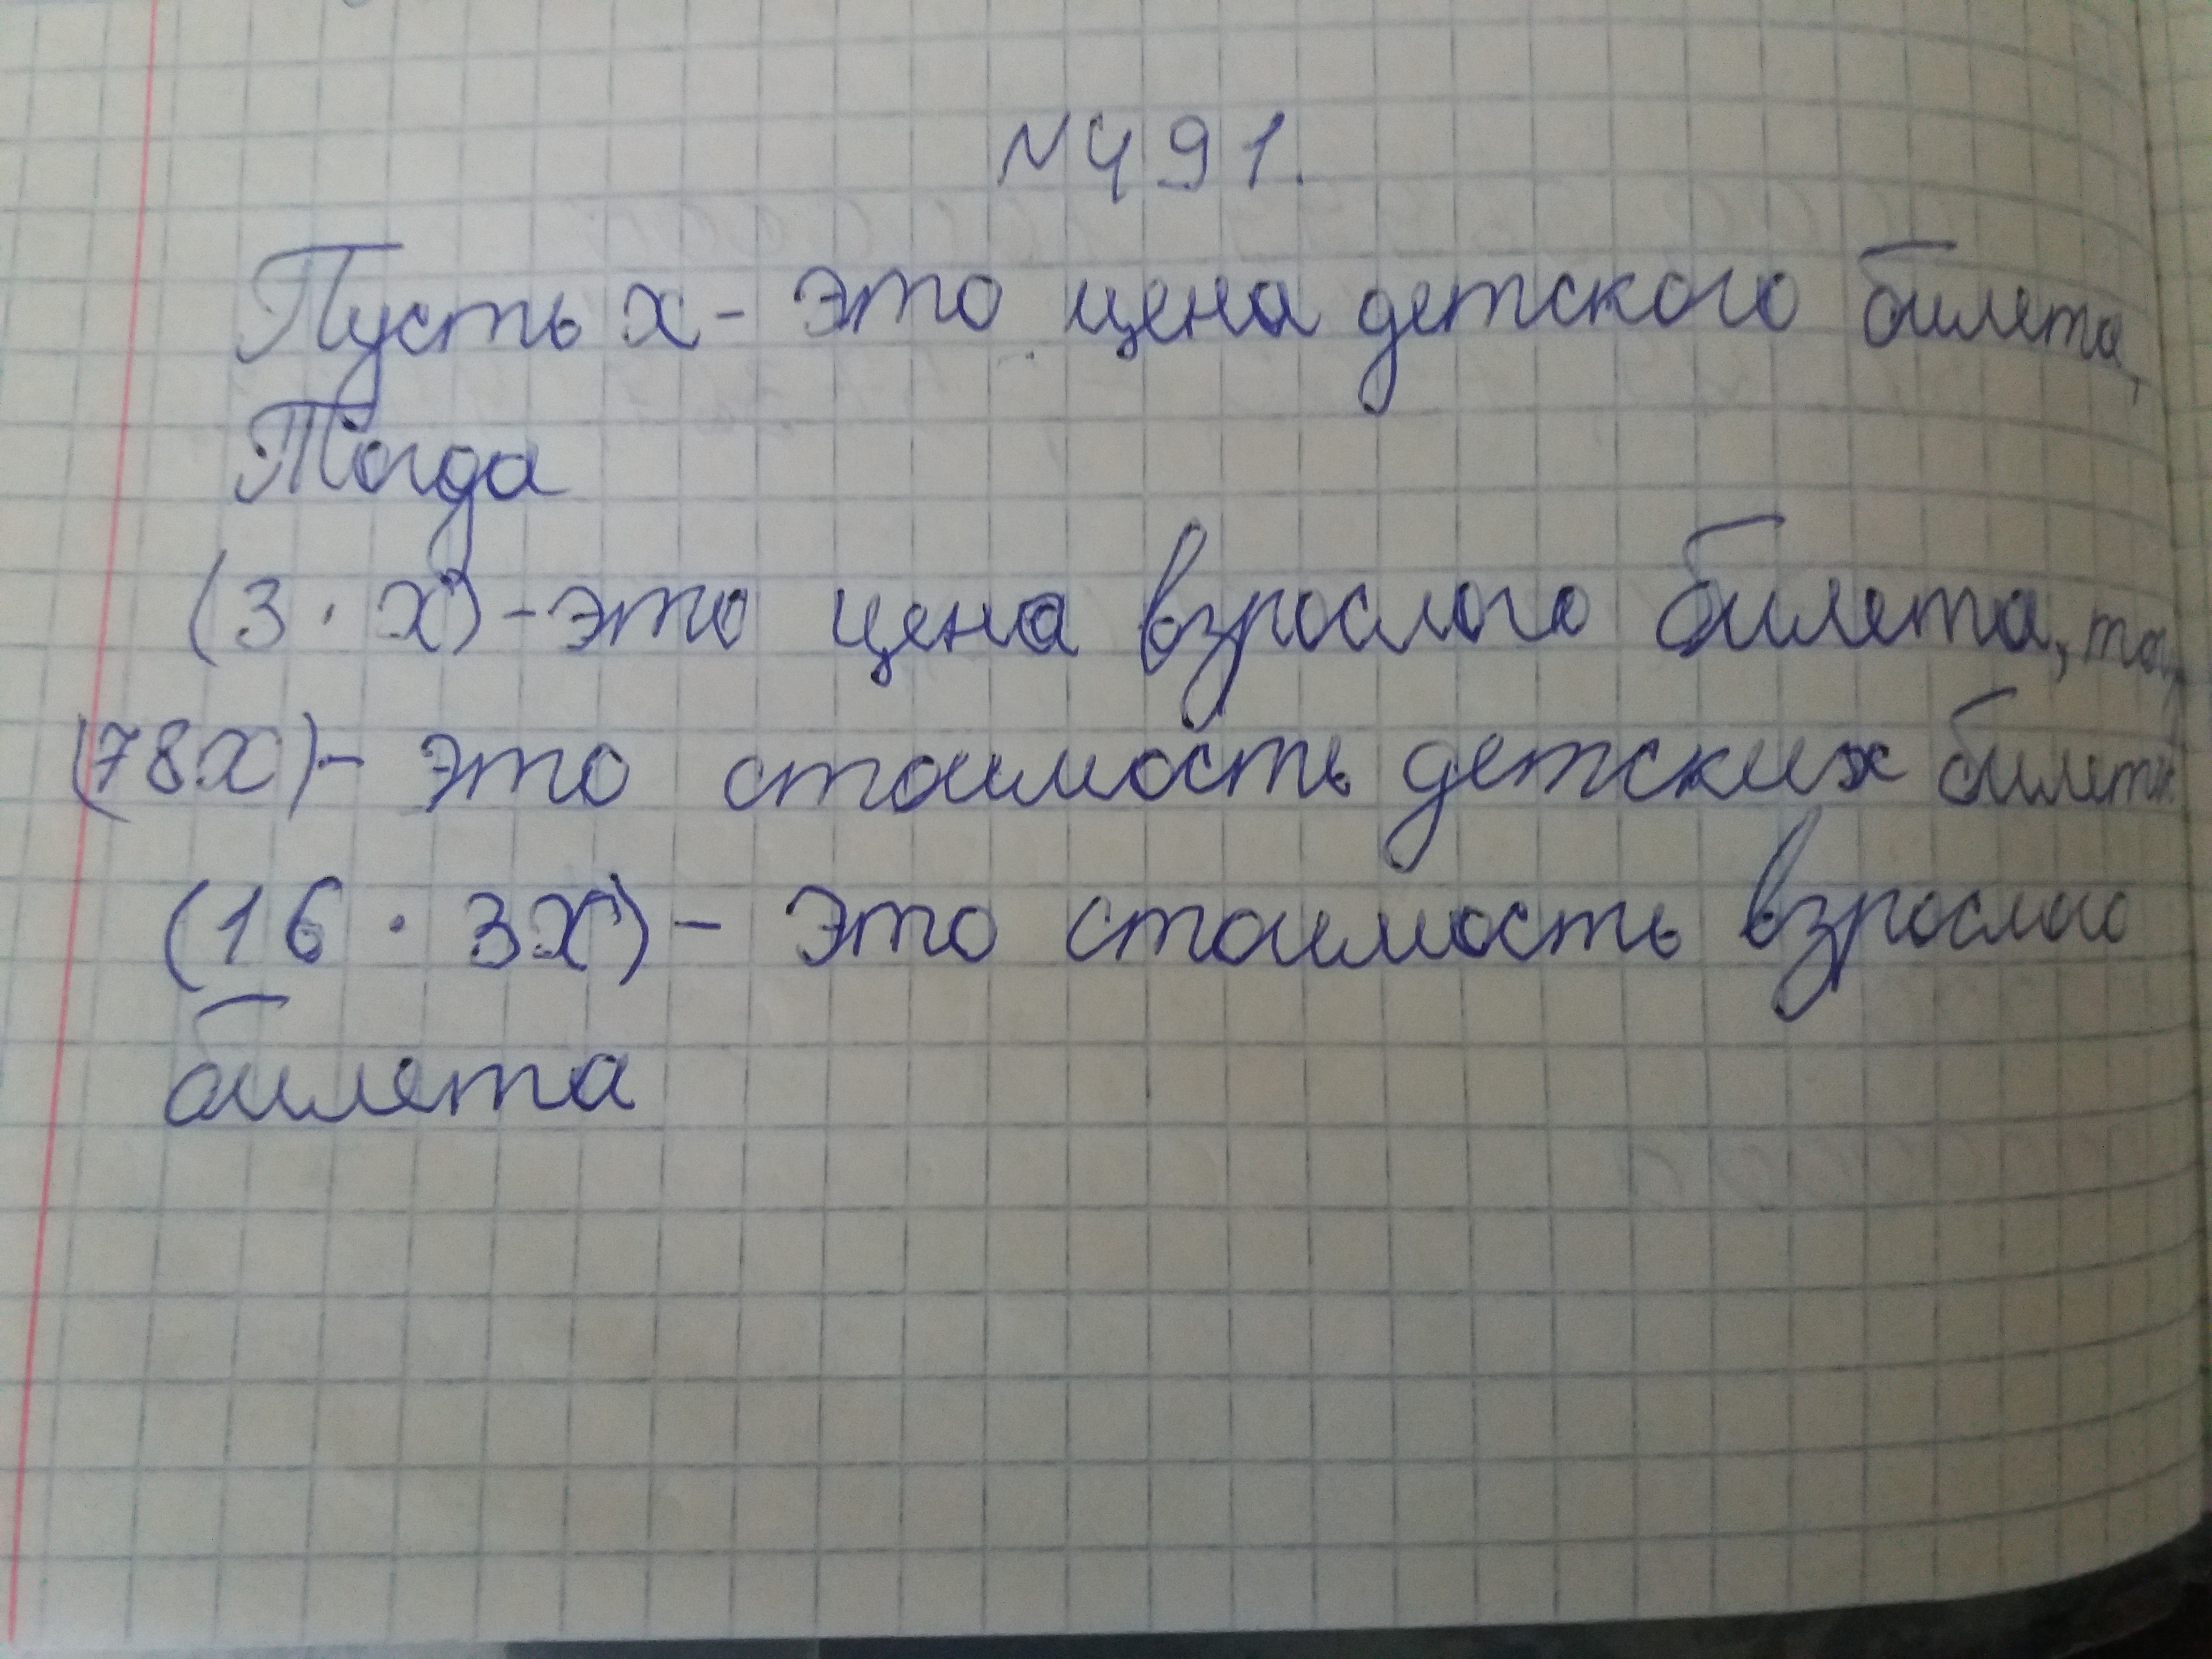 №491.
Пусть x - это цена детского билета,
Тогда
(3 · x) - это цена взрослого билета,
(78x) - это стоимость детских
(16 · 3x) - это стоимость
билета